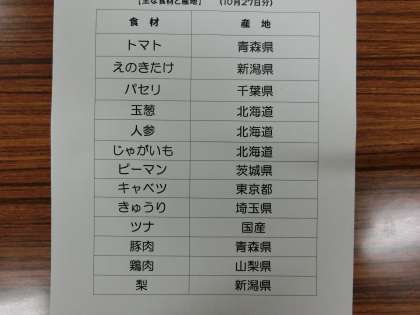 【主な食材と産地】 (10月27日分)
食 材 産 地
トマト 青森県
えのきたけ 新潟県
パセリ 千葉県
玉葱 北海道
人参 北海道
じゃがいも 北海道
ピーマン 茨城県
キャベツ 東京都
きゅうり 埼玉県
ツナ 国産
豚肉 青森県
鶏肉 山梨県
梨 新潟県